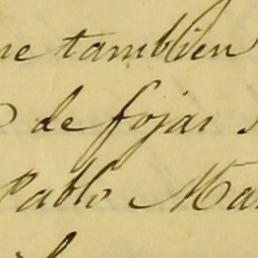 tambien
de fojas
Pablo Ma